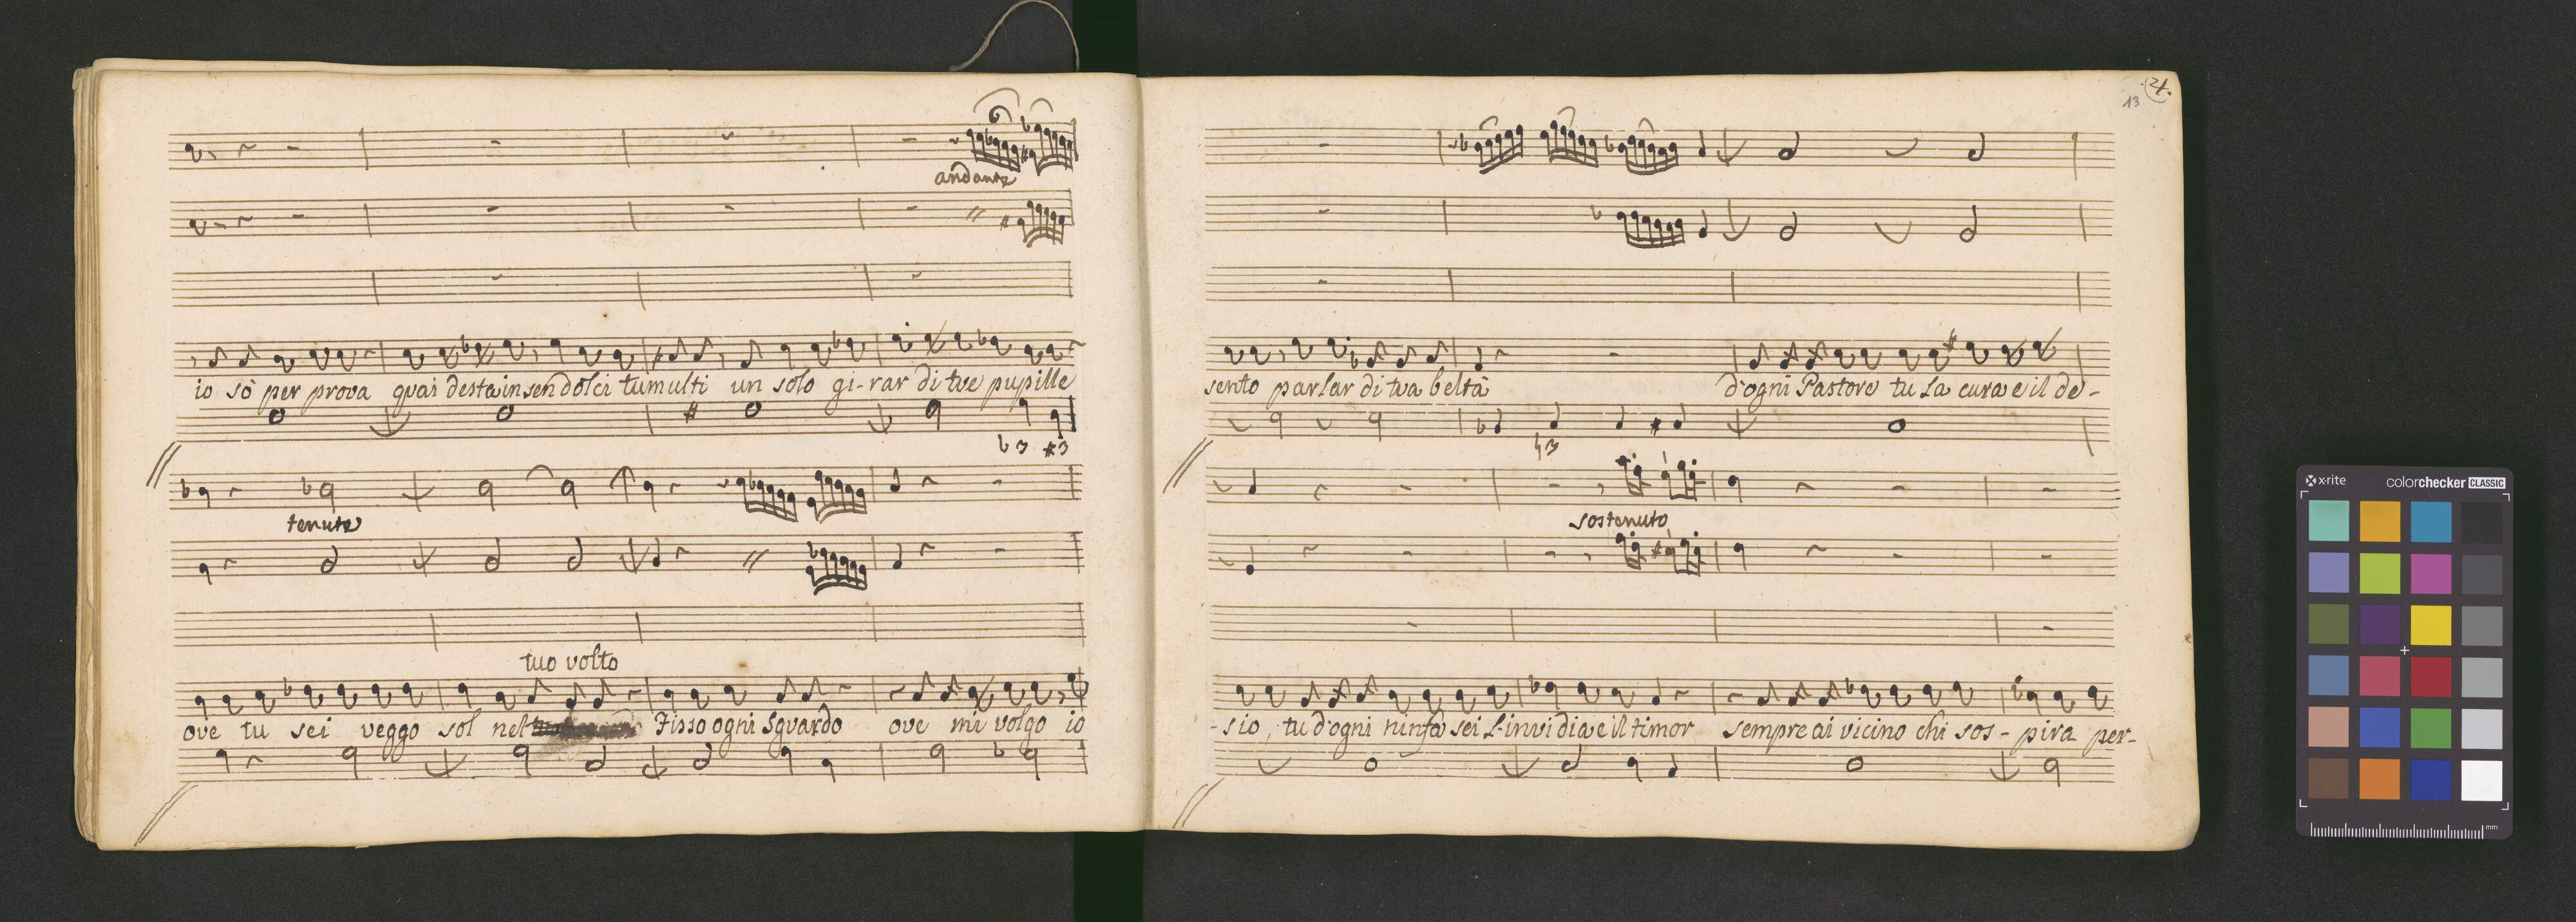 andante
io sò per prova quai desta in sen dolci tumulti un solo gi-rar di tue pupille
b3 #3
tenute
tuo volto
ove tu sei veggo sol nel Fisso ogni sguardo ove mi volgo io
4.
13
sento parlar di tua beltà d'ogni Pastore tu La cura e il de-
♮3
sostenuto
-sio, tu d'ogni ninfa sei L'invidia e il timor sempre ai vicino chi sos-pira per-
x-rite colorchecker CLASSIC
mm